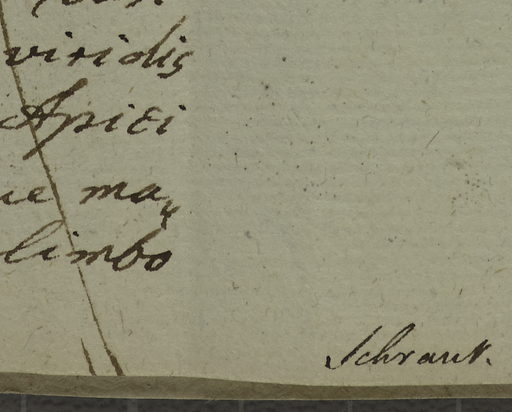 viridis
Apici
ue ma,
limbo
Schrank.